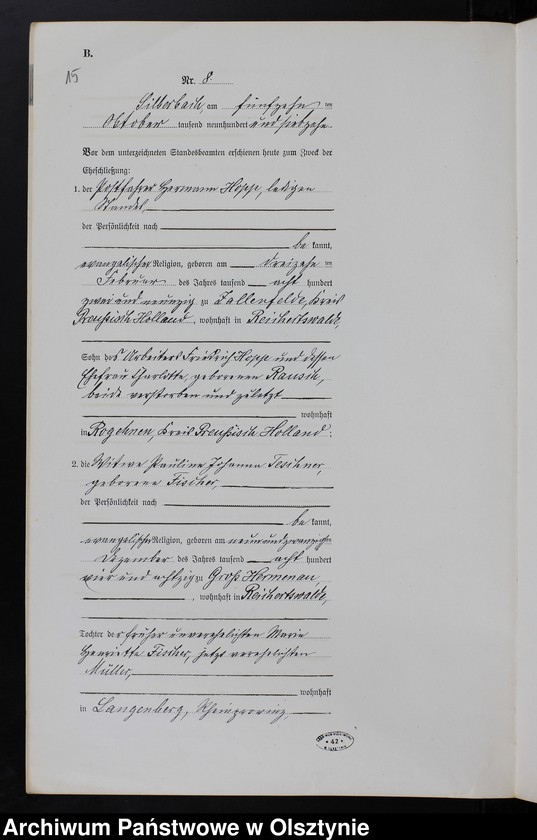 B.
15
Nr. 8.
Silberbach, am fünfzehn ten
Oktober tausend neunhundert und siebzehn.
Vor dem unterzeichneten Standesbeamten erschienen heute zum Zweck der
Eheschließung:
1. der Postfahrer Hermann Hopp, ledigen
Standes,
der Persönlichkeit nach
be kannt,
evangelischer Religion, geboren am dreizehn ten
Februar des Jahres tausend acht hundert
zwei und neunzig zu Zallenfelde, Kreis
Preußisch Holland, wohnhaft in Reichertswalde,
Sohn des Arbeiters Friedrich Hopp und dessen
Ehefrau Charlotte, geborenen Rausch,
beide verstorben und zuletzt
wohnhaft
in Rogehnen, Kreis Preußisch Holland;
2. die Witwe Pauline Johanna Teschner,
geborene Fischer,
der Persönlichkeit nach
be kannt,
evangelischer Religion, geboren am neunundzwanzigsten
Dezember des Jahres tausend acht hundert
vier und achtzig zu Groß Hermenau,
, wohnhaft in Reichertswalde,
Tochter der früher unverehelichten Marie
Henriette Fischer, jetzt verehelichten
Müller,
wohnhaft
in Langenberg, Rheinprovinz,
42
Archiwum Państwowe w Olsztynie